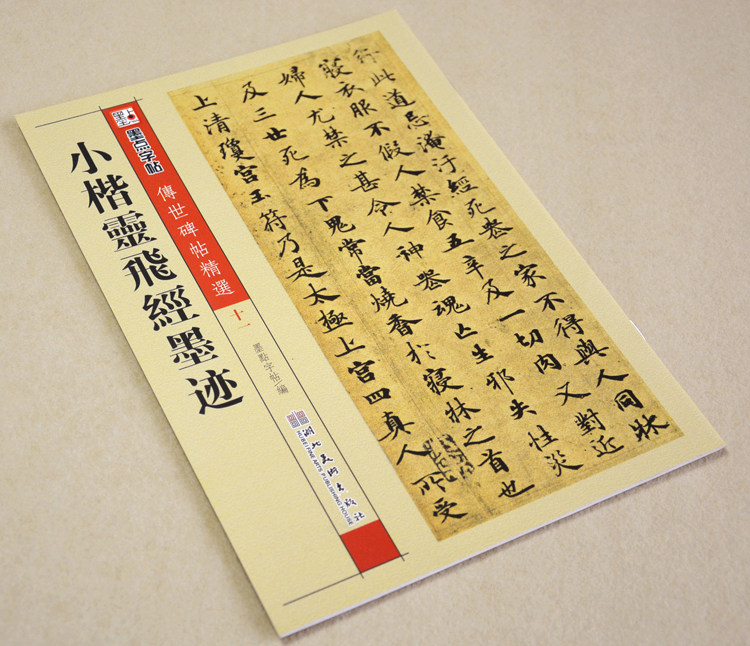 行此道忌淹汙經死喪之家不得與人同牀
寢衣服不假人禁食五辛及一切肉又對近
婦人尤禁之甚令人神喪魂亡生邪失性災
及三世死為下鬼常當燒香於寢牀之首也
上清瓊宮玉符乃是太極上宮四真人所受
墨点字帖
傳世碑帖精選
十一
墨點字帖 編
湖北美术出版社
小楷靈飛經墨迹